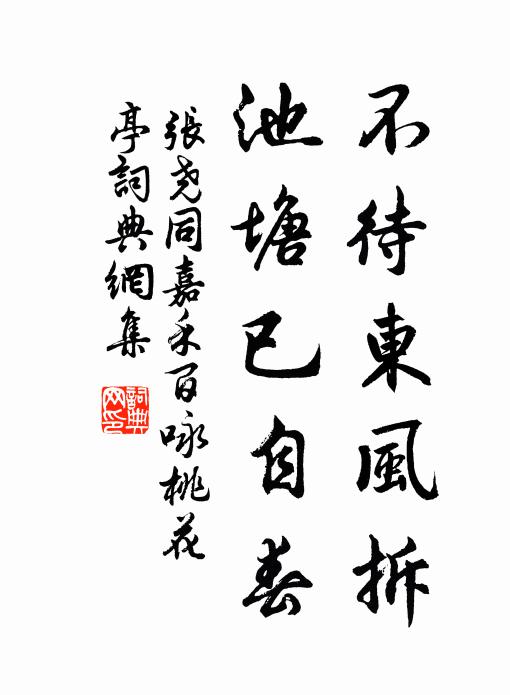 不待東風拆
池塘已自春
張尧同嘉禾百咏桃花
亭詞典網集
詞典
网印